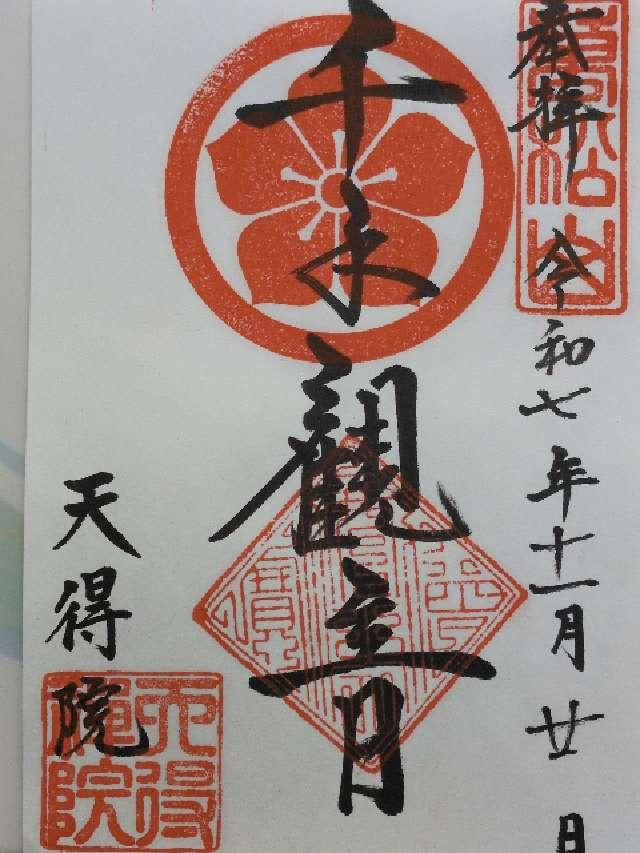 奉拝 令和七年十一月廿日
千手觀音
天得院
萬松山